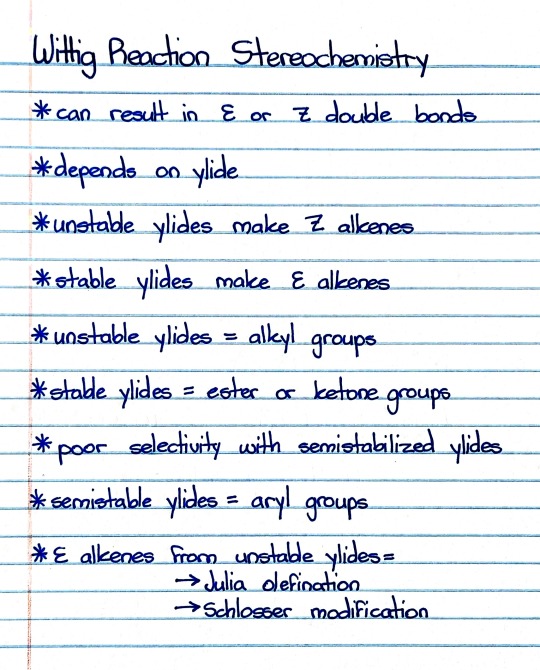 Wittig Reaction Stereochemistry
*can result in E or Z double bonds
*depends on ylide
*unstable ylides make Z alkenes
*stable ylides make E alkenes
*unstable ylides = alkyl groups
*stable ylides = ester or ketone groups
*poor selectivity with semistabilized ylides
*semistable ylides = aryl groups
*E alkenes from unstable ylides=
→Julia olefination
→Schlosser modification